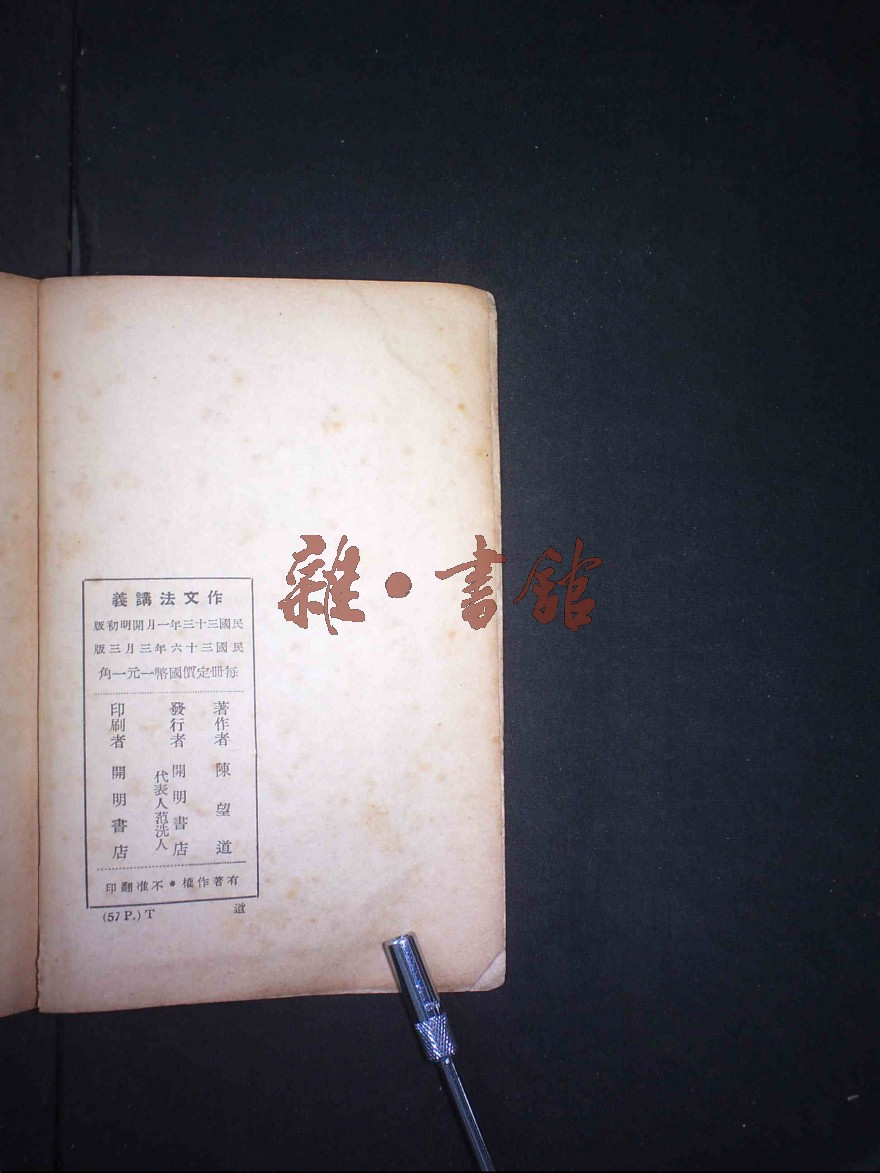 作文法講義
民國三十三年一月開明初版
民國三十六年三月三版
每冊定價國幣一元一角
著作者 陳望道
發行者 開明書店
代表人范洗人
印刷者 開明書店
有著作權*不准翻印
(57 P.) T 道
雜·書館